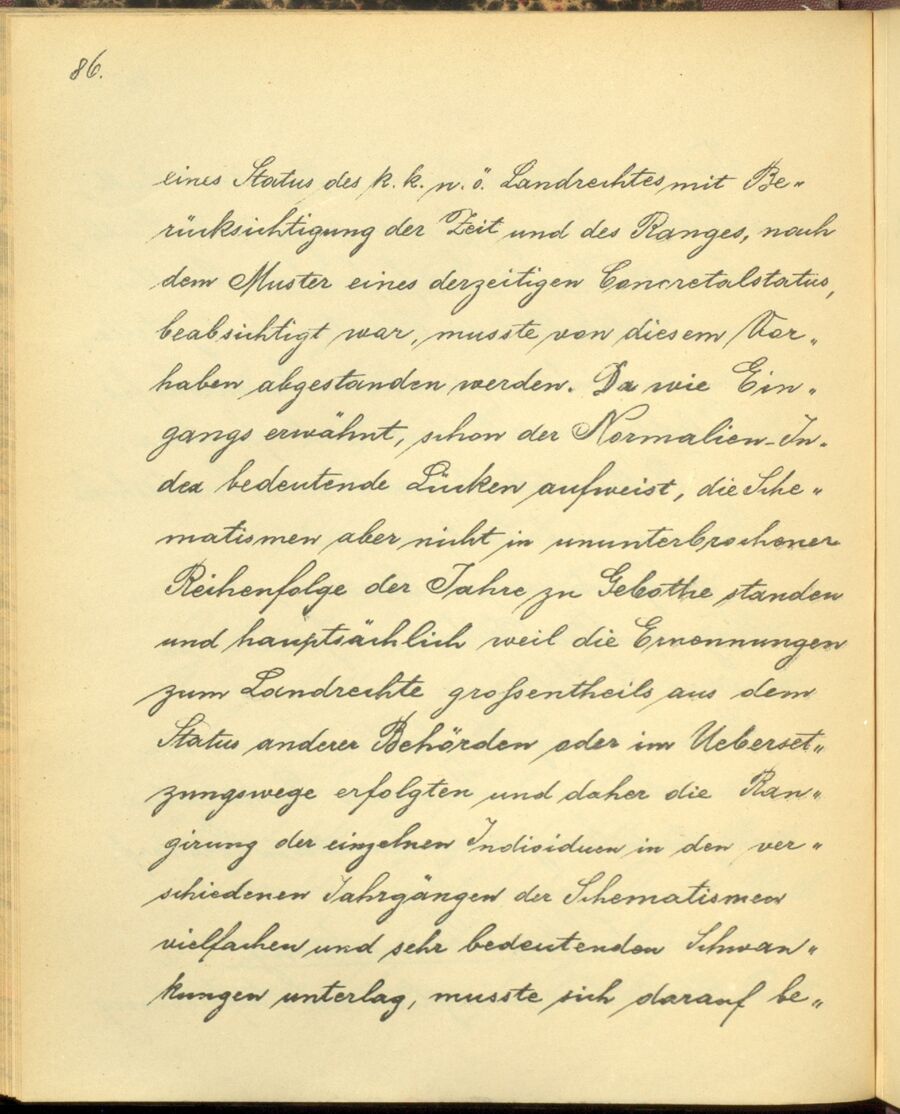 86.
eines Status des k. k. n. ö. Landrechtes mit Be„
rücksichtigung der Zeit und des Ranges, nach
dem Muster eines derzeitigen Concretalstatus,
beabsichtigt war, musste von diesem Vor„
haben abgestanden werden. Da wie Ein„
gangs erwähnt, schon der Normalien-In„
dex bedeutende Lücken aufweist, die Sche„
matismen aber nicht in ununterbrochener
Reihenfolge der Jahre zu Gebothe standen
und hauptsächlich weil die Ernennungen
zum Landrechte großentheils aus dem
Status anderer Behörden oder im Ueberset„
zungswege erfolgten und daher die Ran„
girung der einzelnen Individuen in den ver„
schiedenen Jahrgängen der Schematismen
vielfachen und sehr bedeutenden Schwan„
kungen unterlag, musste sich darauf be„